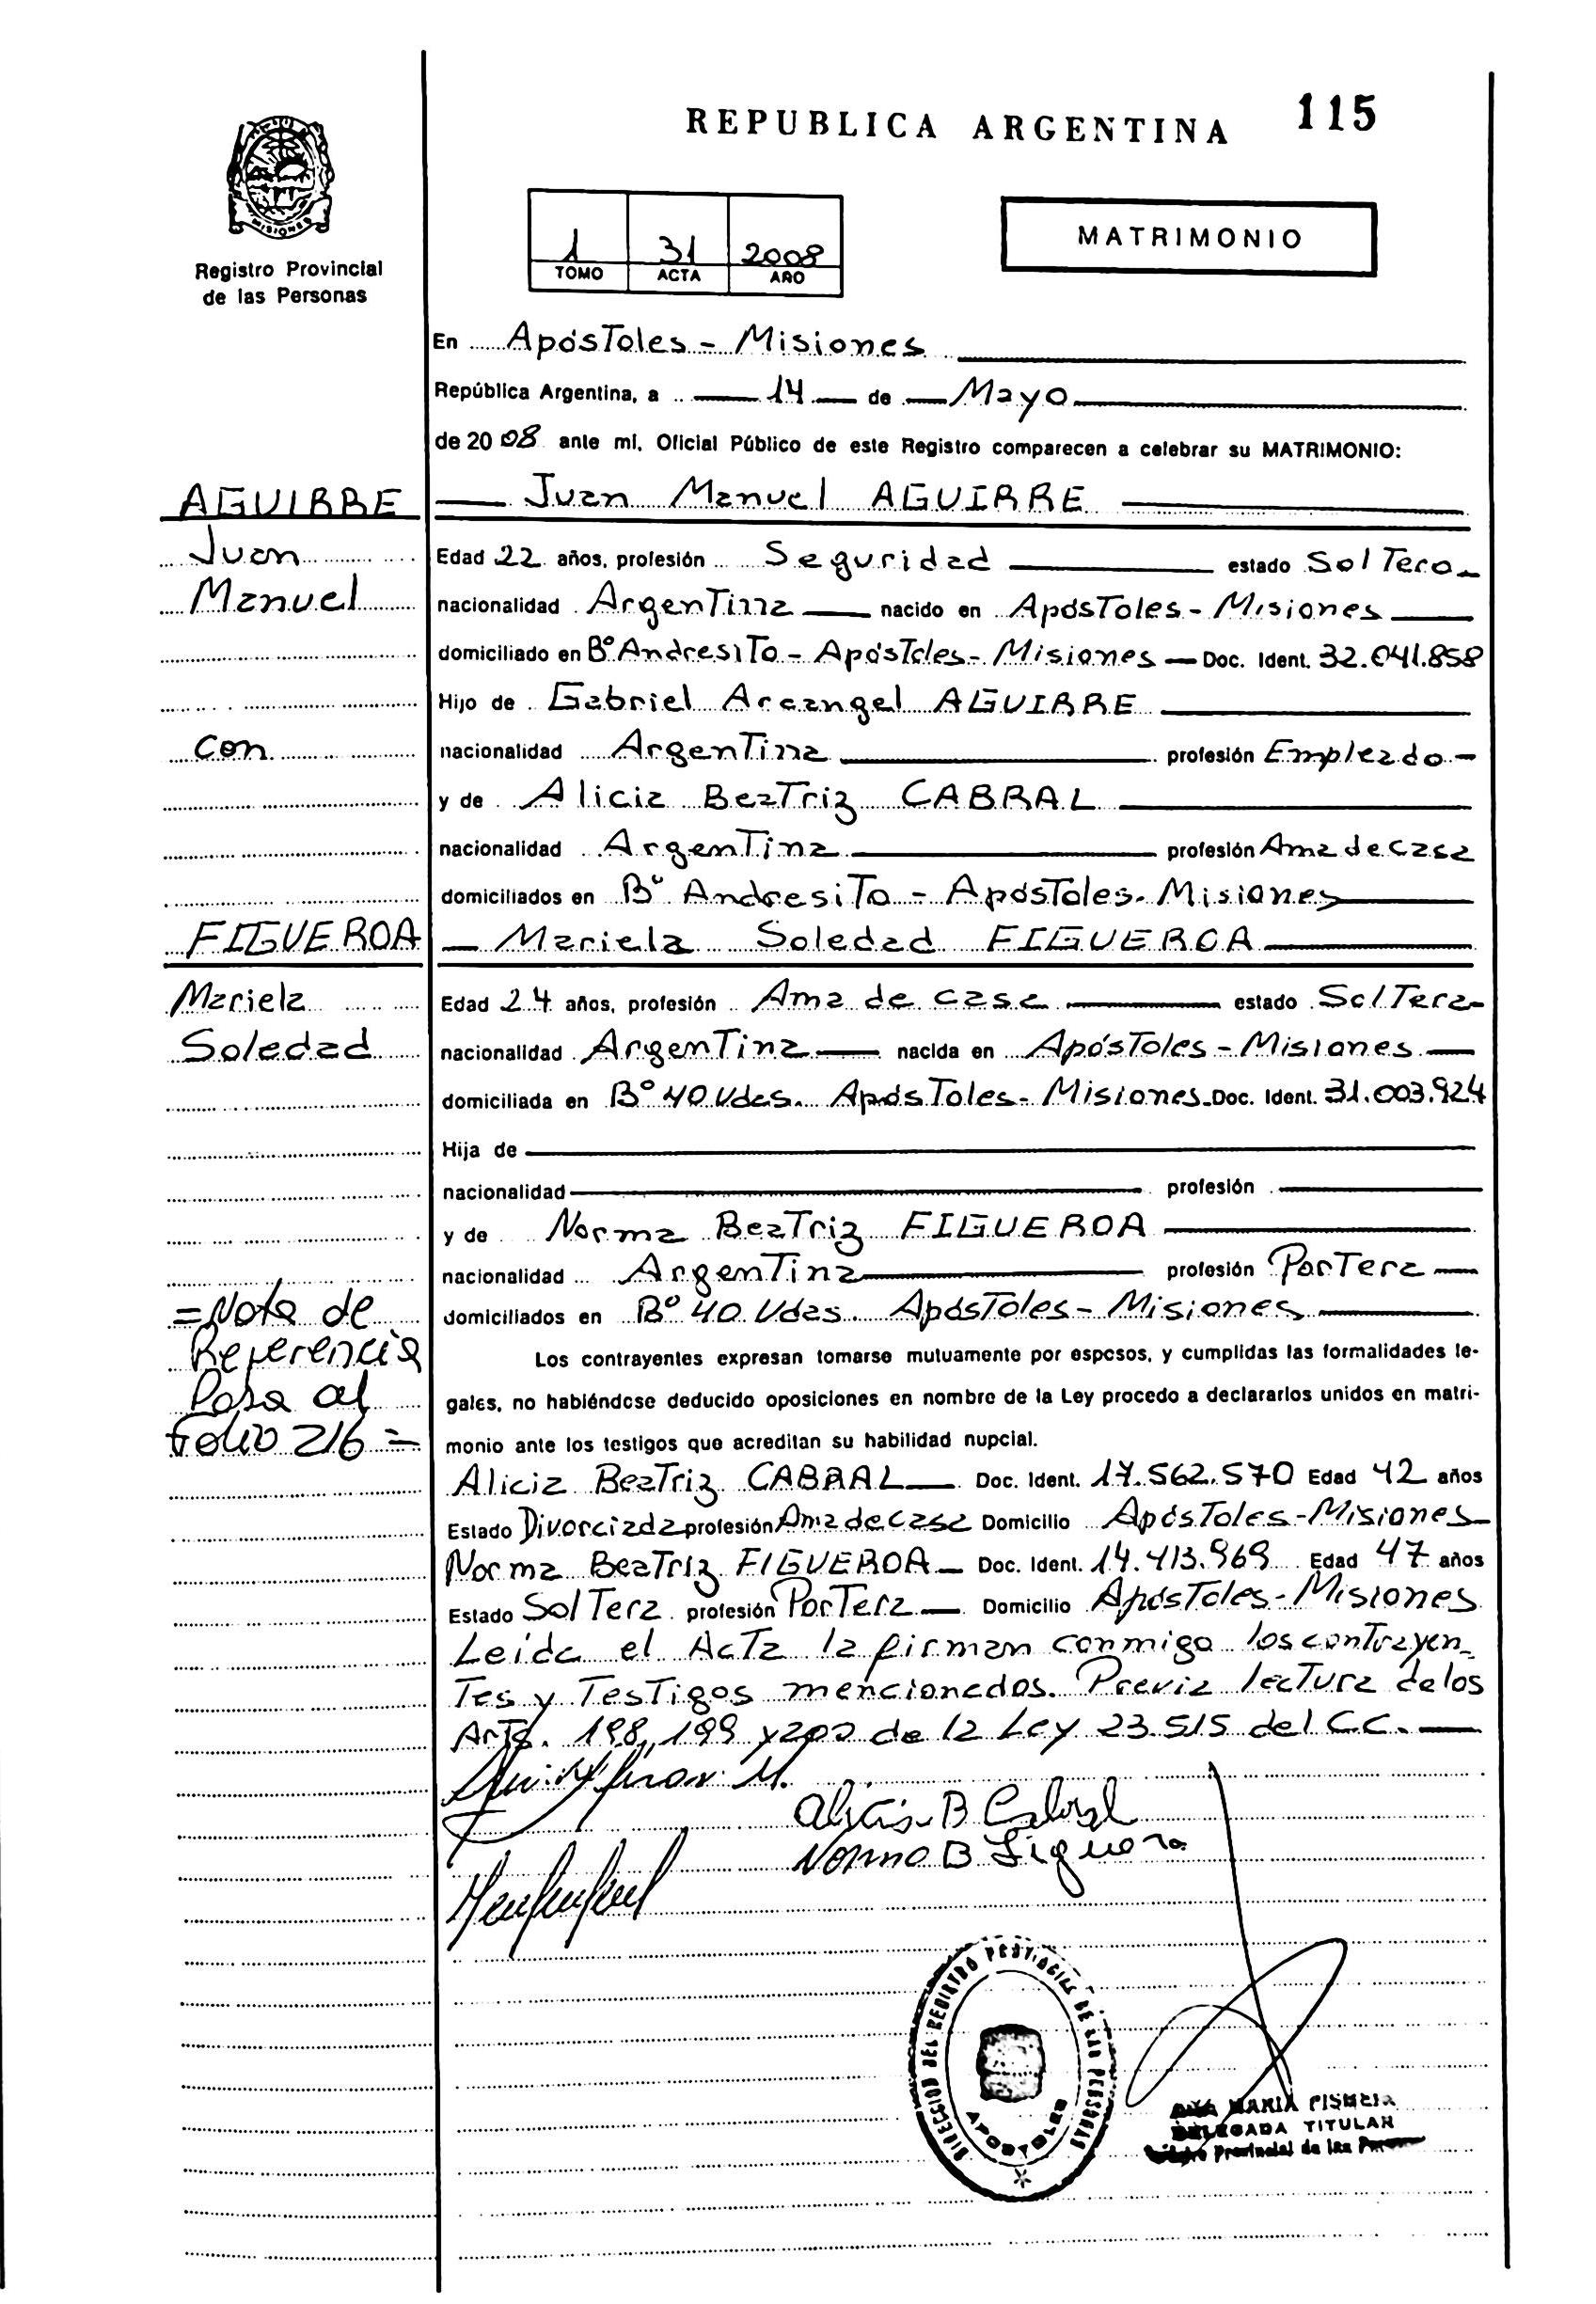 REPUBLICA ARGENTINA 115
MISIONES
Registro Provincial
de las Personas
1 31 2008
TOMO ACTA AÑO
MATRIMONIO
En Apóstoles - Misiones
República Argentina, a 14 de Mayo
de 2008 ante mí, Oficial Público de este Registro comparecen a celebrar su MATRIMONIO:
AGUIRRE
Juan Manuel AGUIRRE
Juan
Edad 22 años, profesión Seguridad estado Soltero
Manuel
nacionalidad Argentina nacido en Apóstoles - Misiones
domiciliado en Bº Andresito - Apóstoles - Misiones - Doc. Ident. 32.041.858
Hijo de Gabriel Arcangel AGUIRRE
con
nacionalidad Argentina profesión Empleado -
y de Alicia Beatriz CABRAL
nacionalidad Argentina profesión Ama de casa
domiciliados en Bº Andresito - Apóstoles - Misiones
FIGUEROA
Mariela Soledad FIGUEROA
Mariela
Edad 24 años, profesión Ama de casa estado Soltera
Soledad
nacionalidad Argentina nacida en Apóstoles - Misiones
domiciliada en Bº 40 Vdas. Apóstoles - Misiones - Doc. Ident. 31.003.924
Hija de
nacionalidad profesión
y de Norma Beatriz FIGUEROA
nacionalidad Argentina profesión Portera
domiciliados en Bº 40 Vdas. Apóstoles - Misiones
=Nota de
Referencia
Pasa al
folio 216=
Los contrayentes expresan tomarse mutuamente por esposos, y cumplidas las formalidades le-
gales, no habiéndose deducido oposiciones en nombre de la Ley procedo a declararlos unidos en matri-
monio ante los testigos que acreditan su habilidad nupcial.
Alicia Beatriz CABRAL Doc. Ident. 17.562.570 Edad 42 años
Estado Divorciada profesión Ama de casa Domicilio Apóstoles - Misiones
Norma Beatriz FIGUEROA Doc. Ident. 14.413.969 Edad 47 años
Estado Soltera profesión Portera Domicilio Apóstoles - Misiones
Leída el Acta la firman conmigo los contrayen-
tes y testigos mencionados. Previa lectura de los
Arts. 198, 199 y 200 de la Ley 23.515 del C.C.
Juan M.
Alicia B Cabral
Norma B Figueroa
DIRECCION DEL REGISTRO PROVINCIAL DE LAS PERSONAS
APOSTOLES
MARIA
DELEGADA TITULAR
Provincial de las